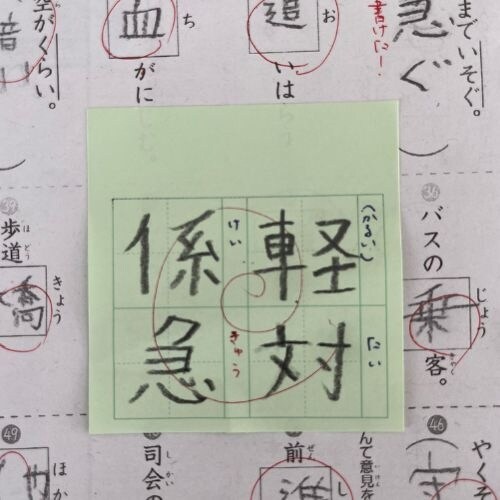 までいそぐ。
急ぐ
書けたー!
追
お
いは
血
ち
がに
空がくらい。
軽
(かるい)
対
たい
係
けい
急
きゅう
㊱
バスの乗客。
じょう
きゃく
㊴
歩道橋
ほどう
きょう
㊻
やくそ
守
んで意見を
いけん
前
ぜん
進
し
司会の
しかい
㊾
ほか